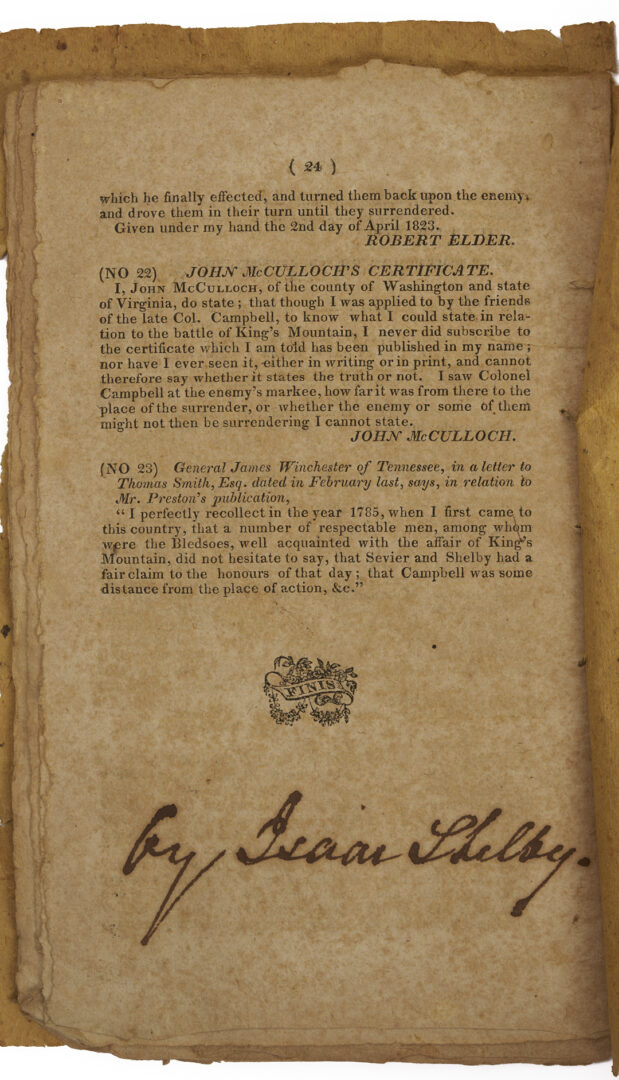 ( 24 )
which he finally effected, and turned them back upon the enemy,
and drove them in their turn until they surrendered.
Given under my hand the 2nd day of April 1823.
ROBERT ELDER.
(NO 22) JOHN McCULLOCH'S CERTIFICATE.
I, JOHN MCCULLOCH, of the county of Washington and state
of Virginia, do state ; that though I was applied to by the friends
of the late Col. Campbell, to know what I could state in rela-
tion to the battle of King's Mountain, I never did subscribe to
the certificate which I am told has been published in my name ;
nor have I ever seen it, either in writing or in print, and cannot
therefore say whether it states the truth or not. I saw Colonel
Campbell at the enemy's markee, how far it was from there to the
place of the surrender, or whether the enemy or some of them
might not then be surrendering I cannot state.
JOHN McCULLOCH.
(NO 23) General James Winchester of Tennessee, in a letter to
Thomas Smith, Esq. dated in February last, says, in relation to
Mr. Preston's publication,
“ I perfectly recollect in the year 1785, when I first came to
this country, that a number of respectable men, among whom
were the Bledsoes, well acquainted with the affair of King's
Mountain, did not hesitate to say, that Sevier and Shelby had a
fair claim to the honours of that day ; that Campbell was some
distance from the place of action, &c.”
FINIS
by Isaac Shelby.